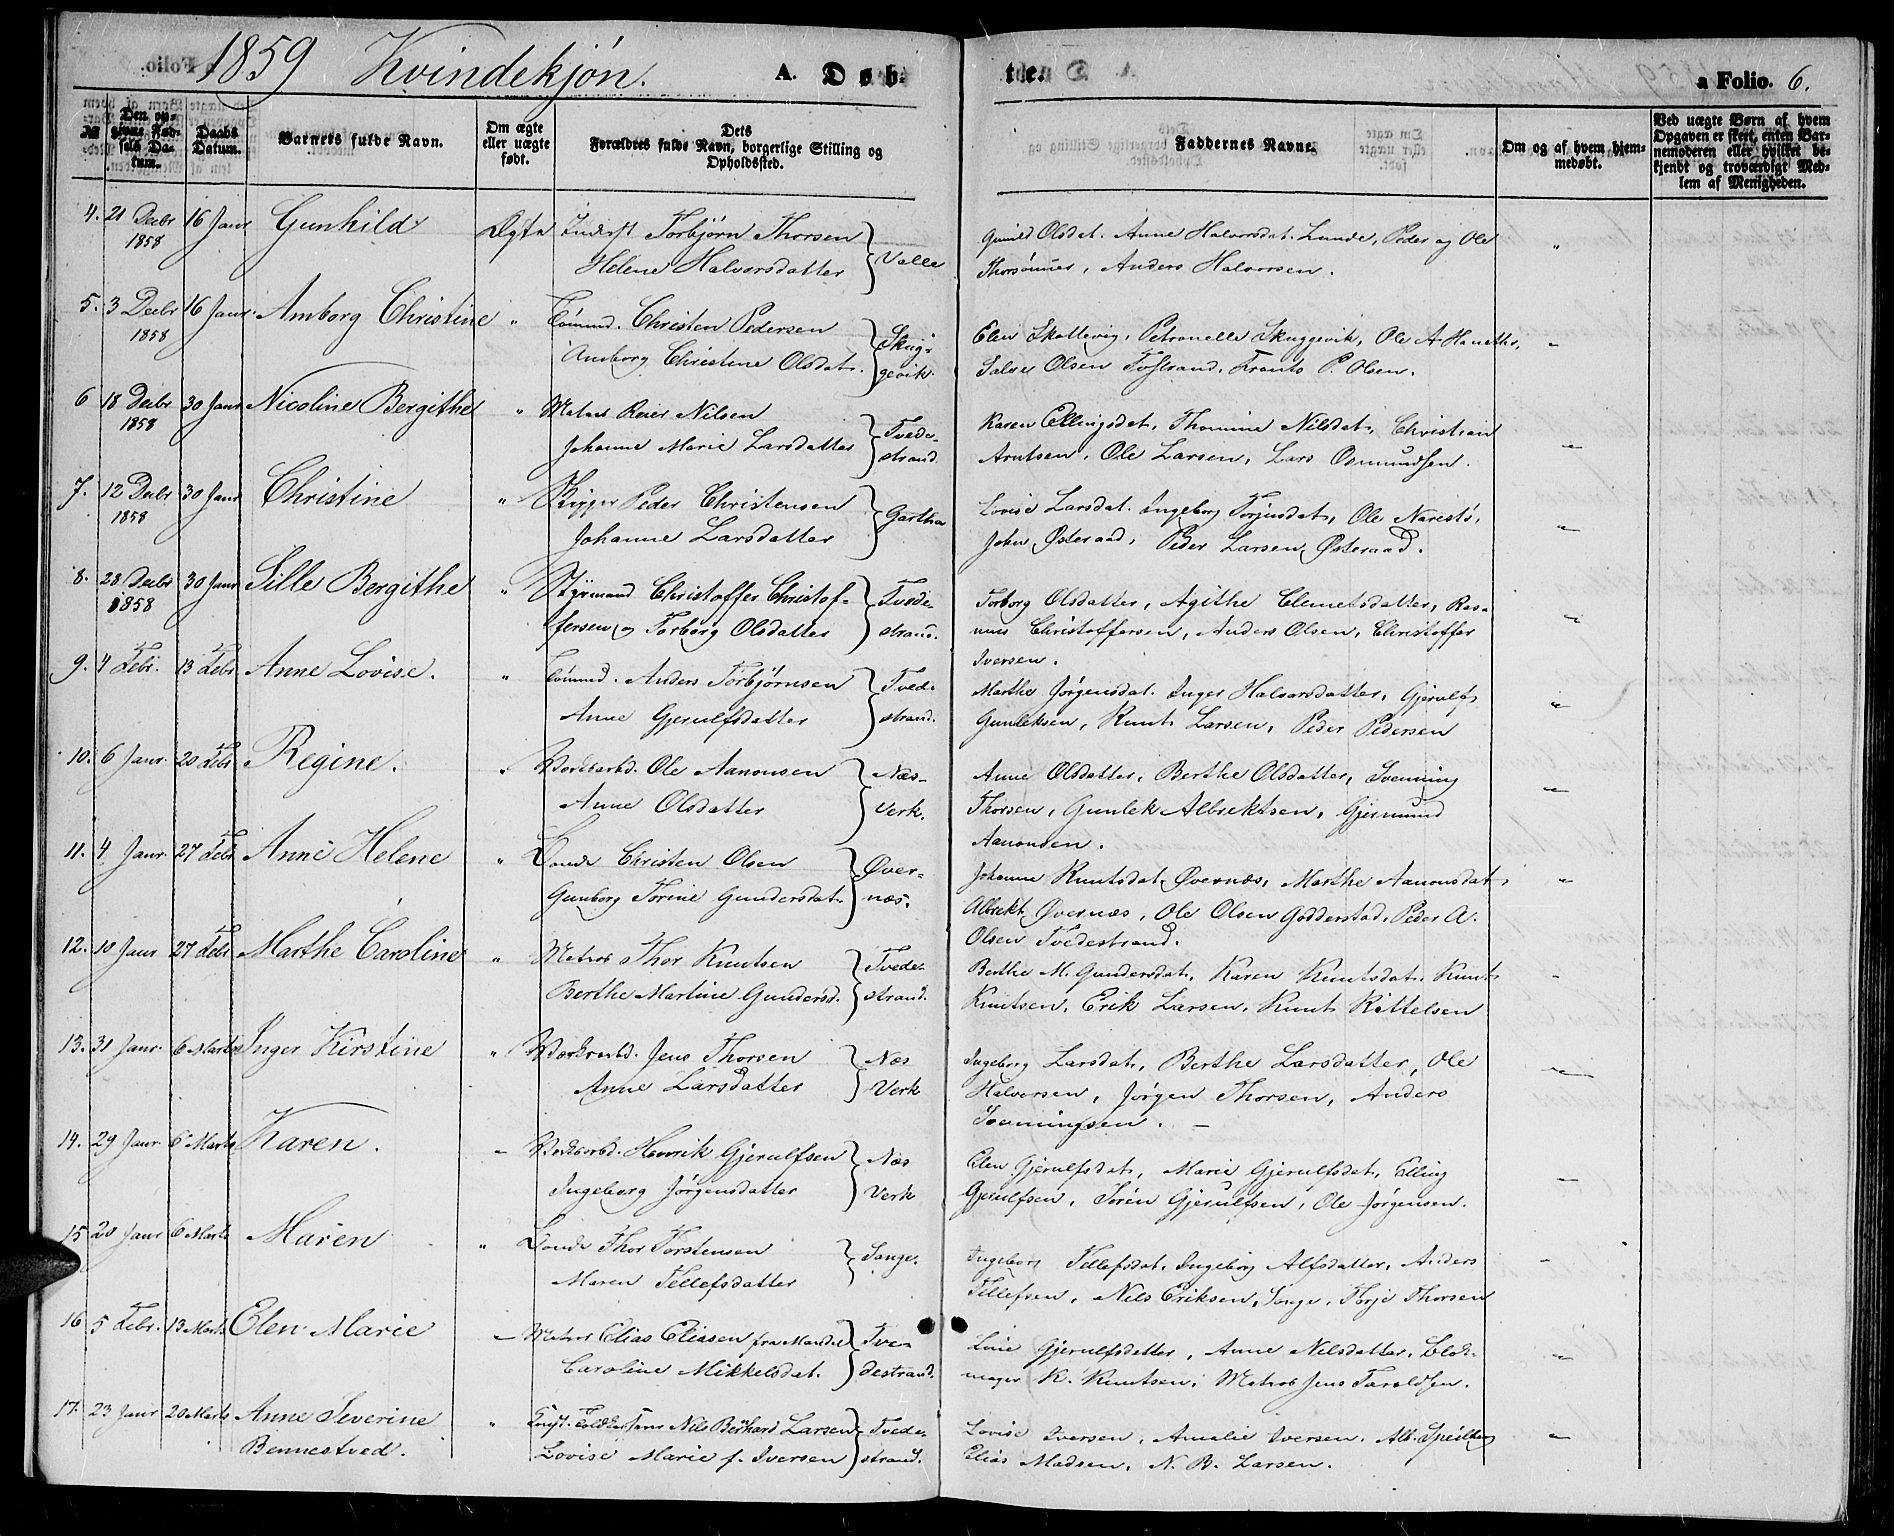 1859 Kvindekjøn. A. Døb- te. a Folio. 6.
№ Den opgivne Fødsels Datum. Daabs Datum. Barnets fulde Navn. Om ægte eller uægte født. Dets Forældres fulde Navn, borgerlige Stilling og Opholdssted. Faddernes Navne. Om og af hvem hjemmedøbt. Ved uægte Børn af hvem Opgaven er skeet, enten Barnemoderen eller hvilket bekjendt og troværdigt Medlem af Menigheden.
4. 21 Decbr 16 Janr Gunhild Ægte Inderst Torbjørn Thorsen Gunild Olsdat. Anne Halvorsdat. Lunde, Peder og Ole "
1858 Helene Halvorsdatter } Valle Thorsønner, Anders Halvorsen.
5. 3 Decbr 16 Janr. Amborg Christine " Tømmd. Christen Pedersen Elen Skottevig, Petronelle Skuggevik, Ole A. "
1858 Amborg Christine Olsdat. } Skuggevik. Salve Olsen Tostrand, Frants P. Olsen.
6 18 Decbr 30 Janr Nicoline Bergithe " Matros Reier Nilsen Karen Ellingsdat, Thomine Nilsdat, Christian
1858 Johanne Marie Larsdatter } Tvedestrand Arntsen, Ole Larsen, Lars Osmundsen. "
7. 12 Decbr 30 Janr Christine " Skipper Peder Christensen Lovise Larsdat. Ingeborg Torjusdat, Ole Narestø,
1858 Johanne Larsdatter } Gartha John Østeraad, Peder Larsen Østeraad. "
8. 28 Decbr 30 Janr Sille Bergithe " Styrmand Christoffer Christof- } Tvede- Torborg Olsdatter, Agithe Clemetsdatter, Ras-
1858 fersen og Torborg Olsdatter strand. mus Christoffersen, Anders Olsen, Christoffer "
Iversen.
9. 4 Febr. 13 Febr Anne Lovise. " Tømmd. Anders Torbjørnsen } Tvede- Marthe Jørgensdat. Inger Halvorsdatter, Gjerulf
Anne Gjerulfsdatter strand. Gunleksen, Knut Larsen, Peder Pedersen "
10. 6 Janr. 20 Febr Regine. " Verksarbd. Ole Aanonsen } Næs- Anne Olsdatter, Berthe Olsdatter, Svenning
Anne Olsdatter Verk. Thorsen, Gunlek Albrektsen, Gjermund "
Aanonsen.
11. 4 Janr. 27 Febr Anne Helene " Bonde Christen Olsen } Øver- Johanne Knutsdat Øvernæs, Marthe Aanonsdat, "
Gunborg Torine Gundersdat. næs. Albrekt Øvernæs, Ole Olsen Godderstad, Peder A.
Olsen Tvedestrand.
12. 10 Janr 27 Febr Marthe Caroline " Matros Thor Knutsen } Tvede- Berthe M. Gundersdat, Karen Knutsdat, Knut "
Berthe Martine Gundersd. strand. Knutsen, Erik Larsen, Knut Kittelsen
13. 31 Janr. 6 Marts Inger Kirstine " Værksarbd. Jens Thorsen } Næs Ingeborg Larsdat, Berthe Larsdatter, Ole
Anne Larsdatter Verk Halvorsen, Jørgen Thorsen, Anders "
Svenningsen. —
14. 29 Janr 6 Marts Karen. " Verksarbd. Henrik Gjerulfsen } Næs Elen Gjerulfsdat, Marie Gjerulfsdat, Elling
Ingeborg Jørgensdatter Verk Gjerulfsen, Søren Gjerulfsen, Ole Jørgensen. "
15 20 Janr 6 Marts Maren " Bonde Thor Torstensen } Songe. Ingeborg Tellefsdat. Ingeborg Alfsdatter, Anders "
Maren Tellefsdatter Tellefsen, Nils Eriksen, Songe, Terje Thorsen
16 5 Febr. 13 Marts Elen Marie " Matros Elias Eliasen fra Mandal } Tve- Line Gjerulfsdatter, Anne Nilsdatter, Blok-
Caroline Mikkelsdat. destrand. mager K. Knutsen, Matros Jens Taraldsen. "
17. 23 Janr 20 Marts Anne Severine " Nils Bernhard Larsen } Tvede- Lovise Iversen, Amalie Iversen. Alb. "
Bennestved. Lovise Marie f. Iversen strand. Elias Madsen, N. B. Larsen.